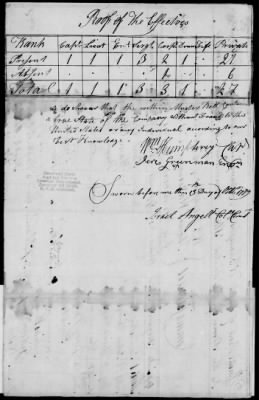 Proof of the Effectives
Rank Capt Lieut Ens Sergts Corpls Drum & Fifs Privates
Present 1 1 1 3 2 1 21
Absent . . . . 1 . 6
Total 1 1 1 3 3 1 27
We do swear that the within Muster Roll is a
true State of the Company without Fraud to the
United States or any Individual according to our
best Knowledge
Wm Humphrey Capt
Jere Greenman Ensn
Sworn before me this 13th Day of
Israel Angell Col Comt